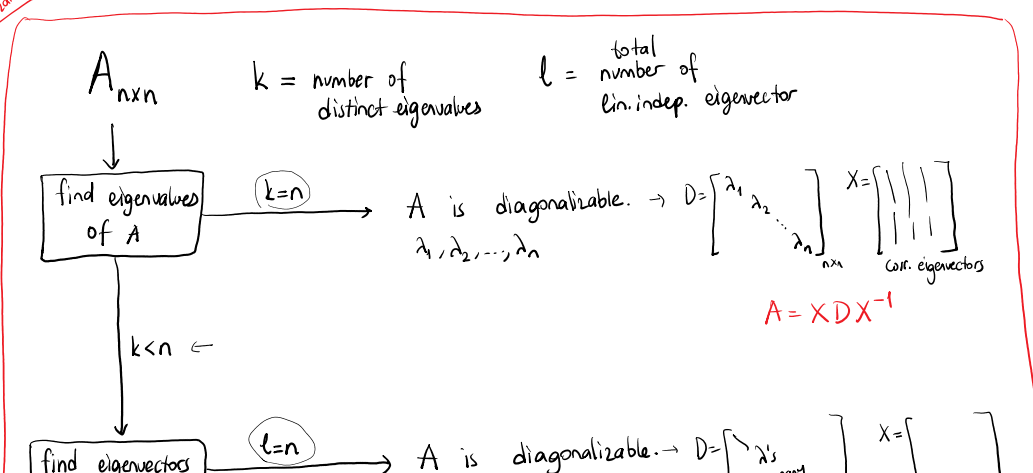 A n×n
k = number of distinct eigenvalues
l = total number of lin. indep. eigenvector
find eigenvalues of A
k=n
A is diagonalizable. → D=[λ1 λ2 ⋱ λn] n×n X=[ ]
λ1, λ2, ..., λn
corr. eigenvectors
A = X D X⁻¹
k<n ←
find eigenvectors
l=n
A is diagonalizable. → D=[ λ's X=[ ]